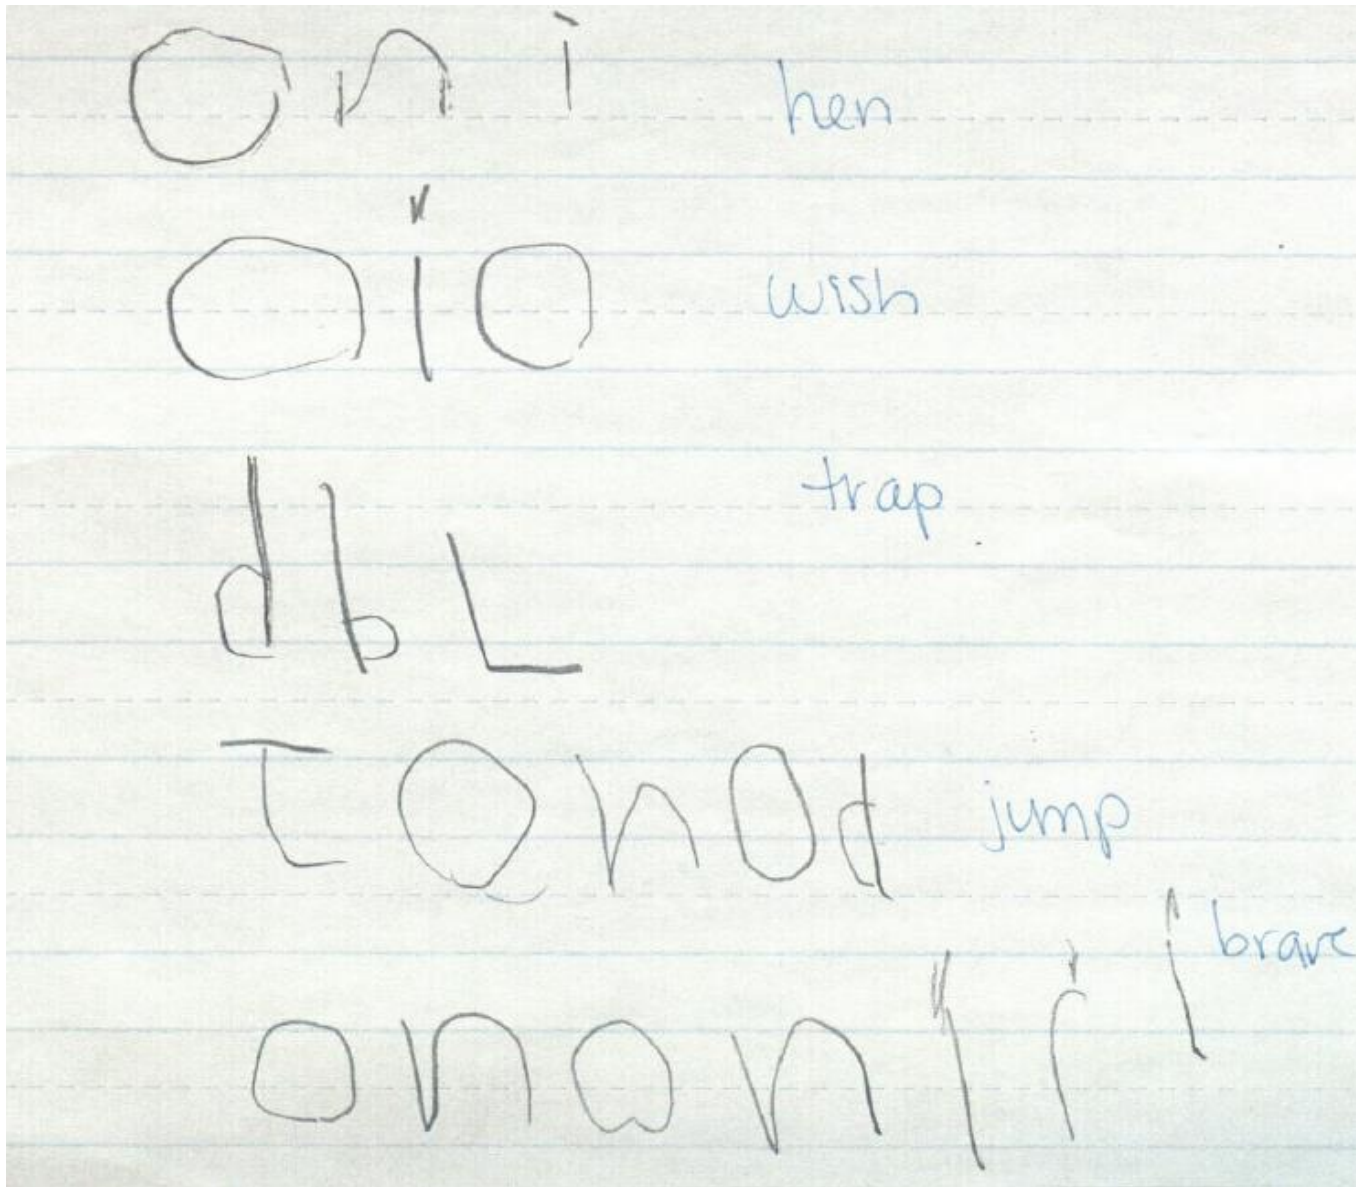 oni hen
oio wish
dbL trap
TOnod jump
brave